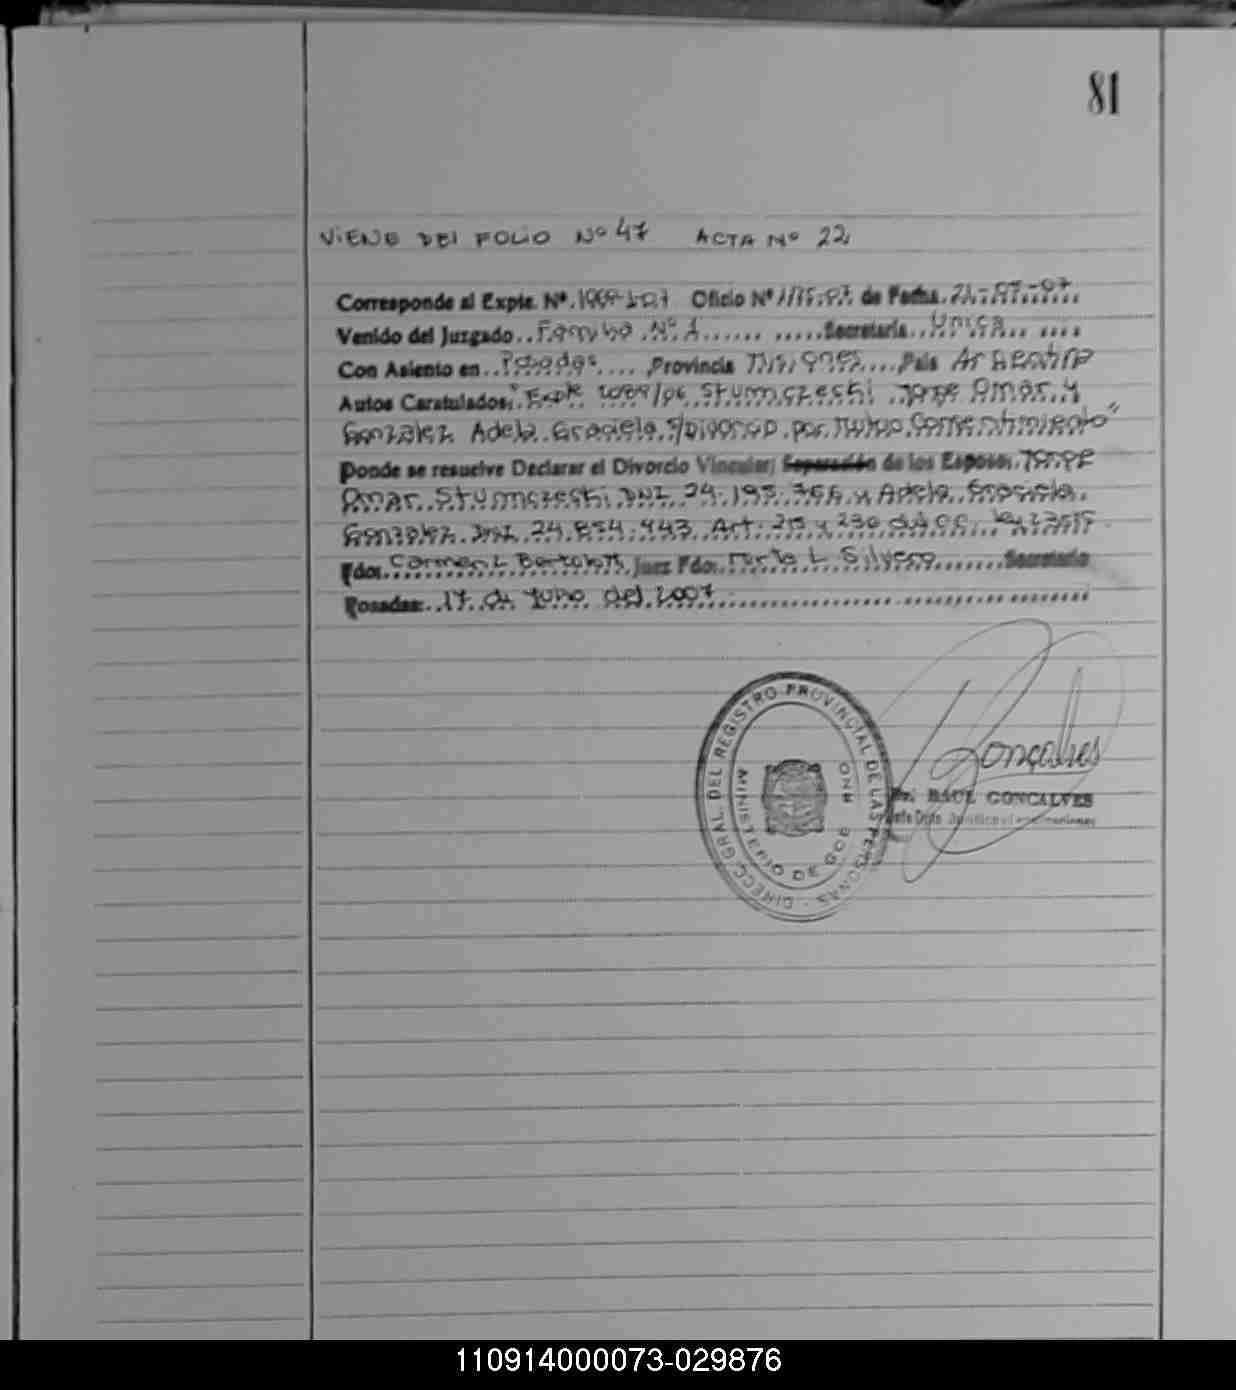 81
VIENE DEL FOLIO Nº 47 ACTA Nº 22
Corresponde al Expte. Nº. Oficio Nº de Fecha.
Venido del Juzgado.. Familia .Nº 1...... .....Secretaría.. Unica.. ....
Con Asiento en.. Posadas .... ,Provincia Misiones.... País Argentina
Autos Caratulados: "Expte Stumczeski Jorge Omar y
Gonzalez Adela Graciela s/Divorcio por Mutuo Consentimiento"
Donde se resuelve Declarar el Divorcio Vincular; Separación de los Esposos Jorge
Omar Stumczeski DNI 24.195. y Adela Graciela
Gonzalez DNI 24.854.443 Art. 215 y 236 del C.C. ley
Fdo: Carmen L Bertolotti Juez Fdo: Mirta L Silvero ....... Secretaria
Posadas: 17 de Julio del 2007
DIRECC. GRAL. DEL REGISTRO PROVINCIAL DE LAS PERSONAS
MINISTERIO DE GOBIERNO
Gonçalves
Dr. RAUL GONCALVES
Jefe Dpto. Jurídico
110914000073-029876